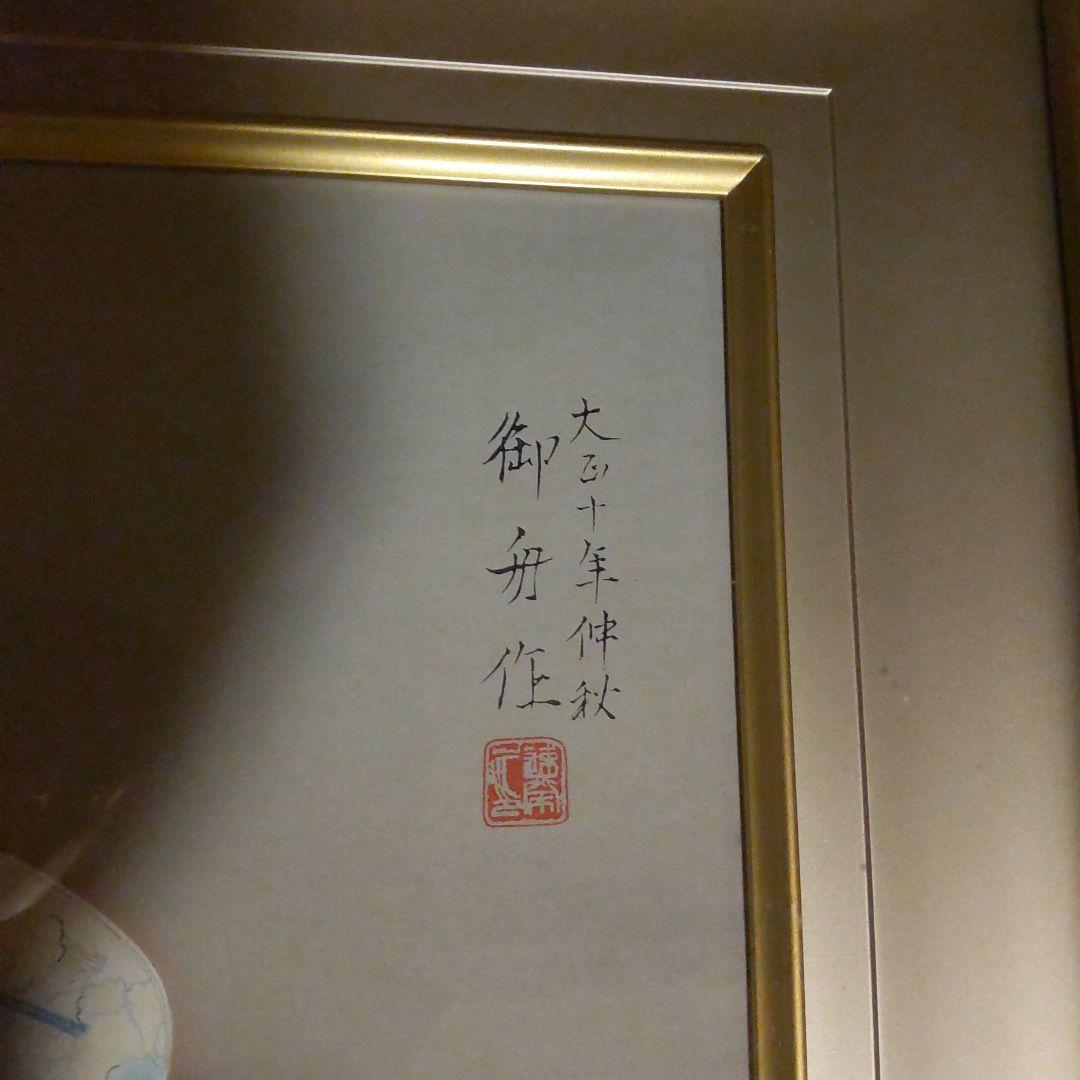 大正十年仲秋
御舟作